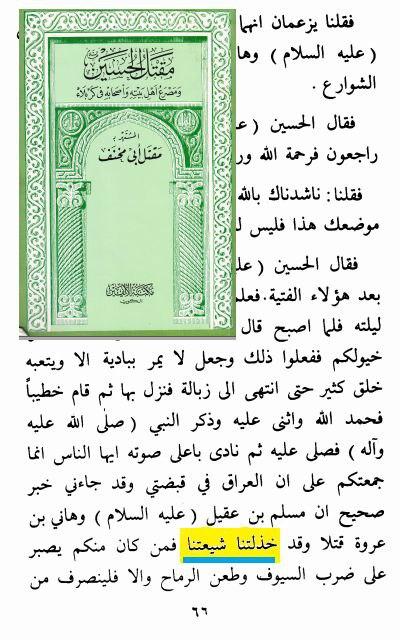 مقتل الحسين
ومصرع أهل بيته وأصحابه في كربلاء
المشتهر بـ
مقتل أبي مخنف
مكتبة الألفين
الكويت
فقلنا يزعمان انهما
( عليه السلام ) وها
الشوارع .
فقال الحسين ( عل
راجعون فرحمة الله ور
فقلنا : ناشدناك بالله
موضعك هذا فليس ل
فقال الحسين ( عل
بعد هؤلاء الفتية . فعلم
ليلته فلما اصبح قال
خيولكم ففعلوا ذلك وجعل لا يمر ببادية الا ويتعبه
خلق كثير حتى انتهى الى زبالة فنزل بها ثم قام خطيباً
فحمد الله واثنى عليه وذكر النبي ( صلى الله عليه
وآله ) فصلى عليه ثم نادى باعلى صوته ايها الناس انما
جمعتكم على ان العراق في قبضتي وقد جاءني خبر
صحيح ان مسلم بن عقيل ( عليه السلام ) وهاني بن
عروة قتلا وقد خذلتنا شيعتنا فمن كان منكم يصبر
على ضرب السيوف وطعن الرماح والا فلينصرف من
٦٦